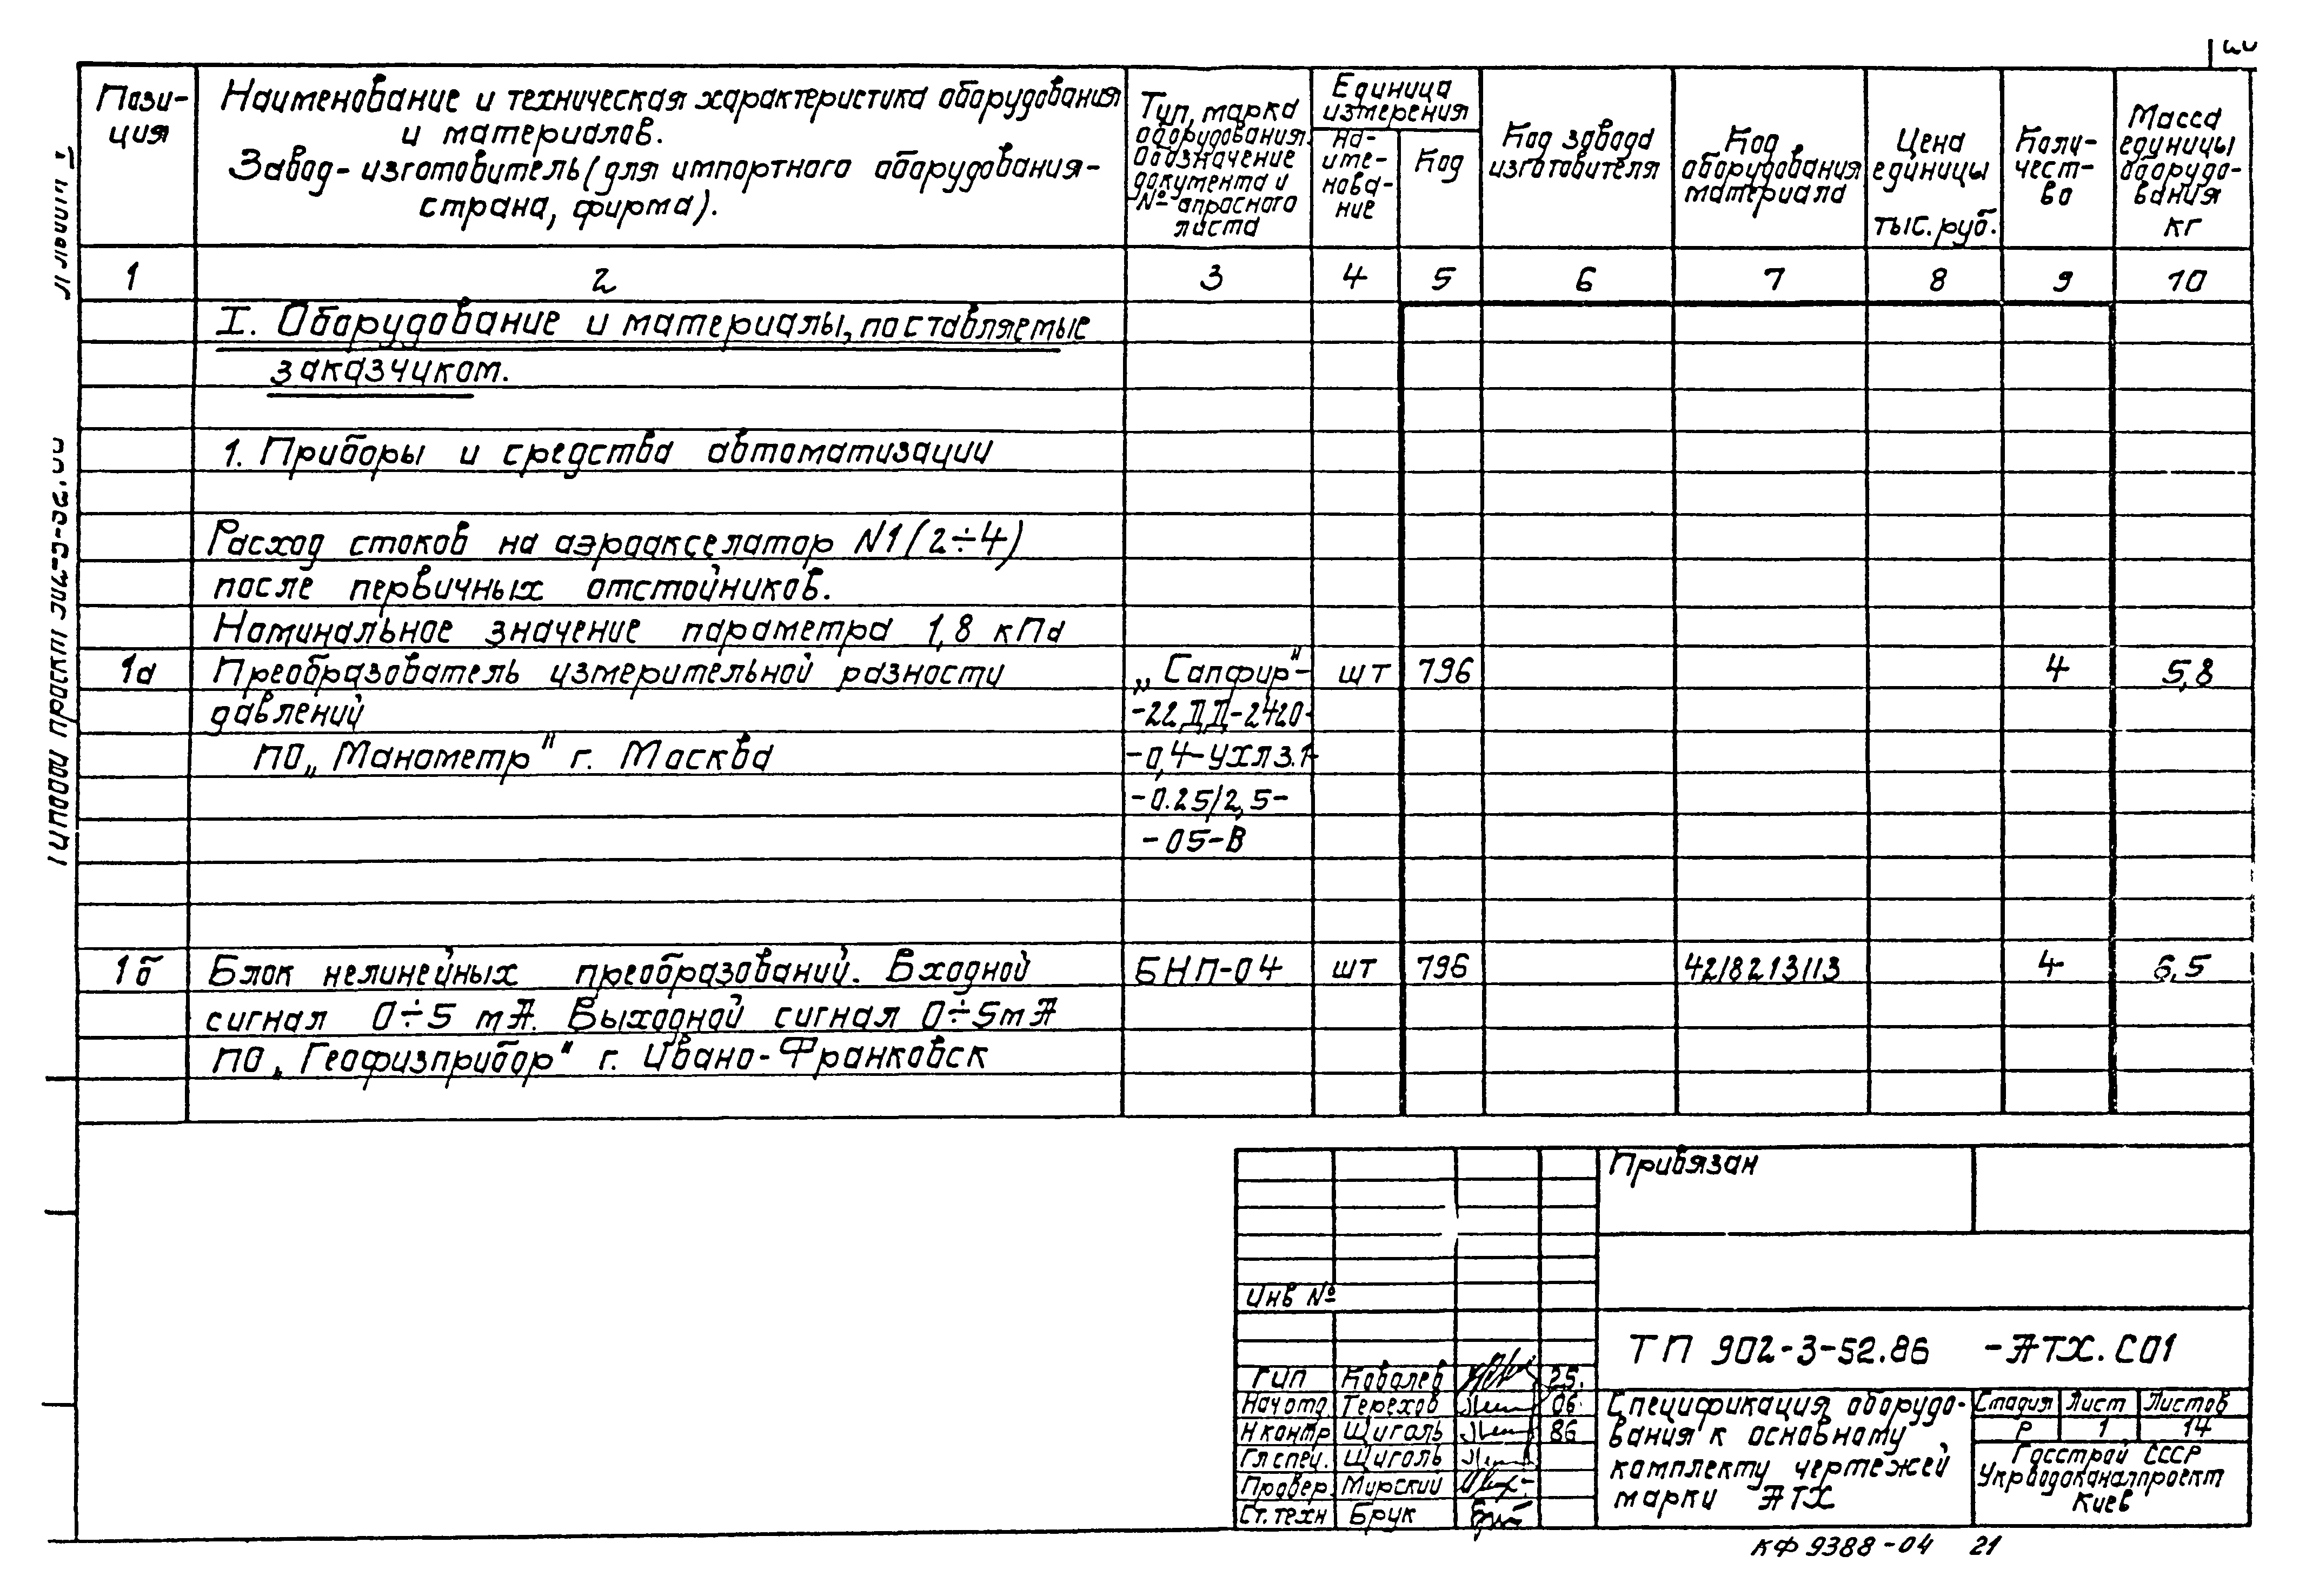 Пози-
ция
Наименование и техническая характеристика оборудования
и материалов.
Завод-изготовитель (для импортного оборудования-
страна, фирма).
Тип, марка
оборудования.
Обозначение
документа и
№ опросного
листа
Единица
измерения
На-
име-
нова-
ние
Код
Код завода
изготовителя
Код
оборудования
материала
Цена
единицы
тыс. руб.
Коли-
чест-
во
Масса
единицы
оборудо-
вания
кг
1 2 3 4 5 6 7 8 9 10
I. Оборудование и материалы, поставляемые
заказчиком.
1. Приборы и средства автоматизации
Расход стоков на аэроакселатор N1 (2÷4)
после первичных отстойников.
Номинальное значение параметра 1,8 кПа
1а Преобразователь измерительной разности „Сапфир"- шт 796 4 5,8
давлений -22ДД-2420-
ПО „Манометр" г. Москва -0,4-УХЛ3.1-
-0.25/2,5-
-05-В
1б Блок нелинейных преобразований. Входной БНП-04 шт 796 4218213113 4 6,5
сигнал 0÷5 mА. Выходной сигнал 0÷5mА
ПО „Геофизприбор" г. Ивано-Франковск
Типовой проект 902-3-52.86
Привязан
Инв №
ТП 902-3-52.86 -АТХ.С01
ГИП Ковалев 25.
Нач отд Терехов 06.
Н контр Щиголь 86
Гл спец. Щиголь
Провер. Мирский
Ст. техн Брук
Спецификация оборудо-
вания к основному
комплекту чертежей
марки АТХ
Стадия Лист Листов
Р 1 14
Госстрой СССР
Укрводоканалпроект
Киев
КФ 9388-04 21